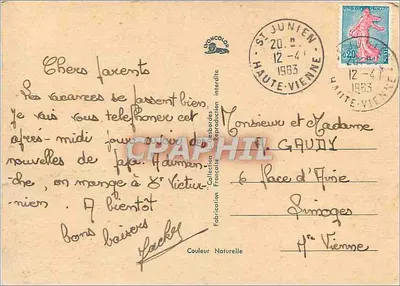 LYONCOLOR
ST JUNIEN
20 H
12-4
1963
HAUTE-VIENNE
12-4
1963
HAUTE-VIENNE
Chers parents
Les vacances se passent bien.
Je vais vous telephoner cet
après-midi pour avoir des
nouvelles de papa. Adiman-
che, on mange à St Victur-
nien. A bientôt
bons baisers
Jacky
Monsieur et Madame
A. GAUDY
6 Place d'Aine
Limoges
Hte Vienne
CPAPHIL
Fabrication Française
Reproduction interdite
Couleur Naturelle